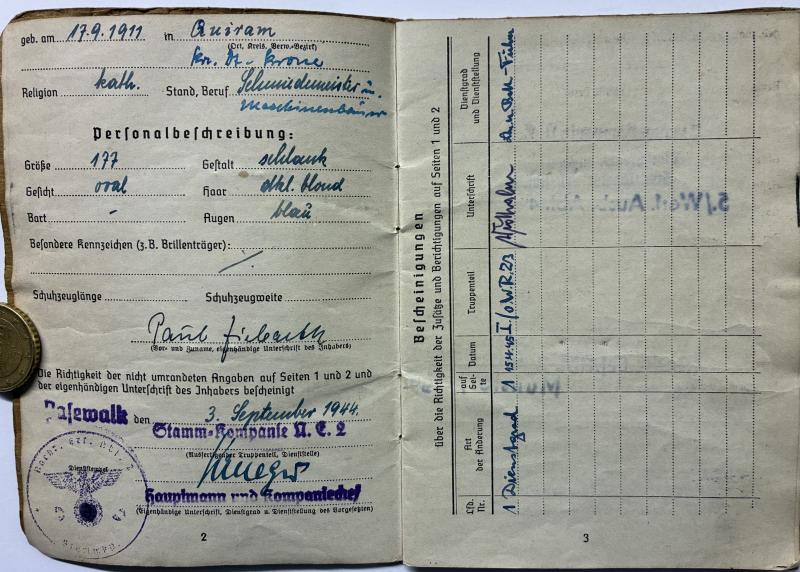 geb. am 17.9.1911 in Quiram
(Ort, Kreis, Verw.-Bezirk)
Kr. Dt. Krone
Religion kath. Stand, Beruf Schmiedemeister u.
Maschinenbauer
Personalbeschreibung:
Größe 177 Gestalt schlank
Gesicht oval Haar dkl. blond
Bart - Augen blau
Besondere Kennzeichen (z.B. Brillenträger):
Schuhzeuglänge Schuhzeugweite
Paul
(Vor- und Zuname, eigenhändige Unterschrift des Inhabers)
Die Richtigkeit der nicht umrandeten Angaben auf Seiten 1 und 2 und
der eigenhändigen Unterschrift des Inhabers bescheinigt
Pasewalk den 3. September 1944.
Stamm-Kompanie N. E. 2
(Ausfertigender Truppenteil, Dienststelle)
Dienststempel
Hauptmann und Kompaniechef
(Eigenhändige Unterschrift, Dienstgrad u. Dienststellung des Vorgesetzten)
2
Bescheinigungen
über die Richtigkeit der Zusätze und Berichtigungen auf Seiten 1 und 2
Lfd. Nr.
Art der Änderung
auf Seite
Datum
Truppenteil
Unterschrift
Dienstgrad und Dienststellung
1 Dienstgrad 1 15.4.45 I/O.W.R. 23
3